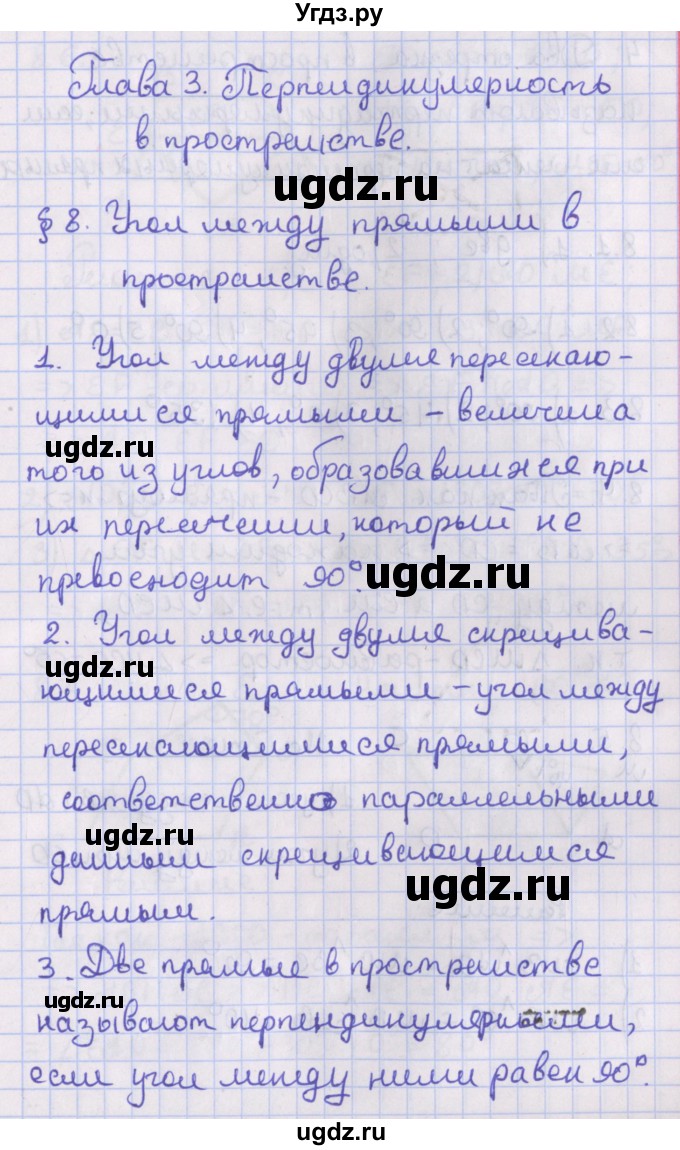 Угдз.ру
Глава 3. Перпендикулярность
в пространстве.
ugdz.ru
§ 8. Угол между прямыми в
пространстве.
ugdz.ru
1. Угол между двумя пересекаю-
щимися прямыми – величина
ugdz.ru
того из углов, образовавшихся при
их пересечении, который не
превосходит 90°.
ugdz.ru
2. Угол между двумя скрещива-
ugdz.ru
ющимися прямыми – угол между
пересекающимися прямыми,
соответственно параллельными
ugdz.ru
данным скрещивающимся
ugdz.ru
прямым.
3. Две прямые в пространстве
ugdz.ru
называют перпендикулярными,
если угол между ними равен 90°.
ugdz.ru